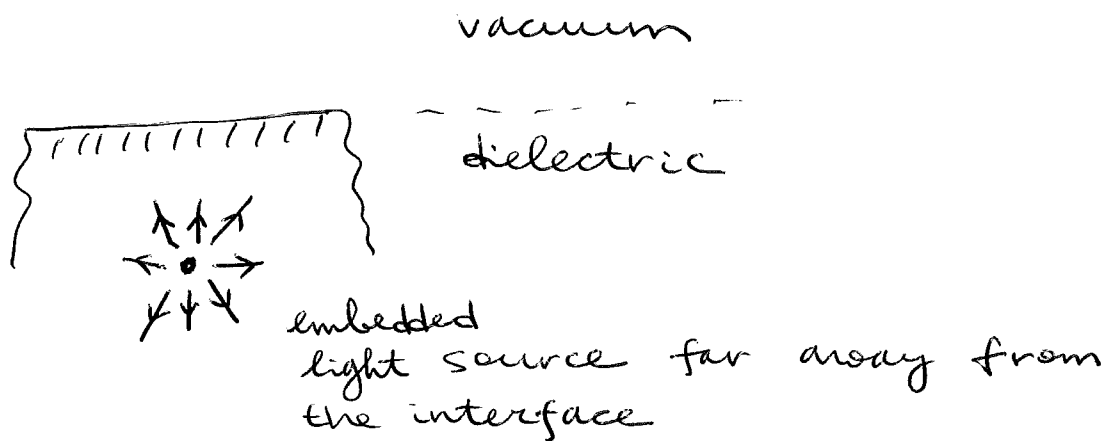 vacuum
dielectric
embedded
light source far away from
the interface